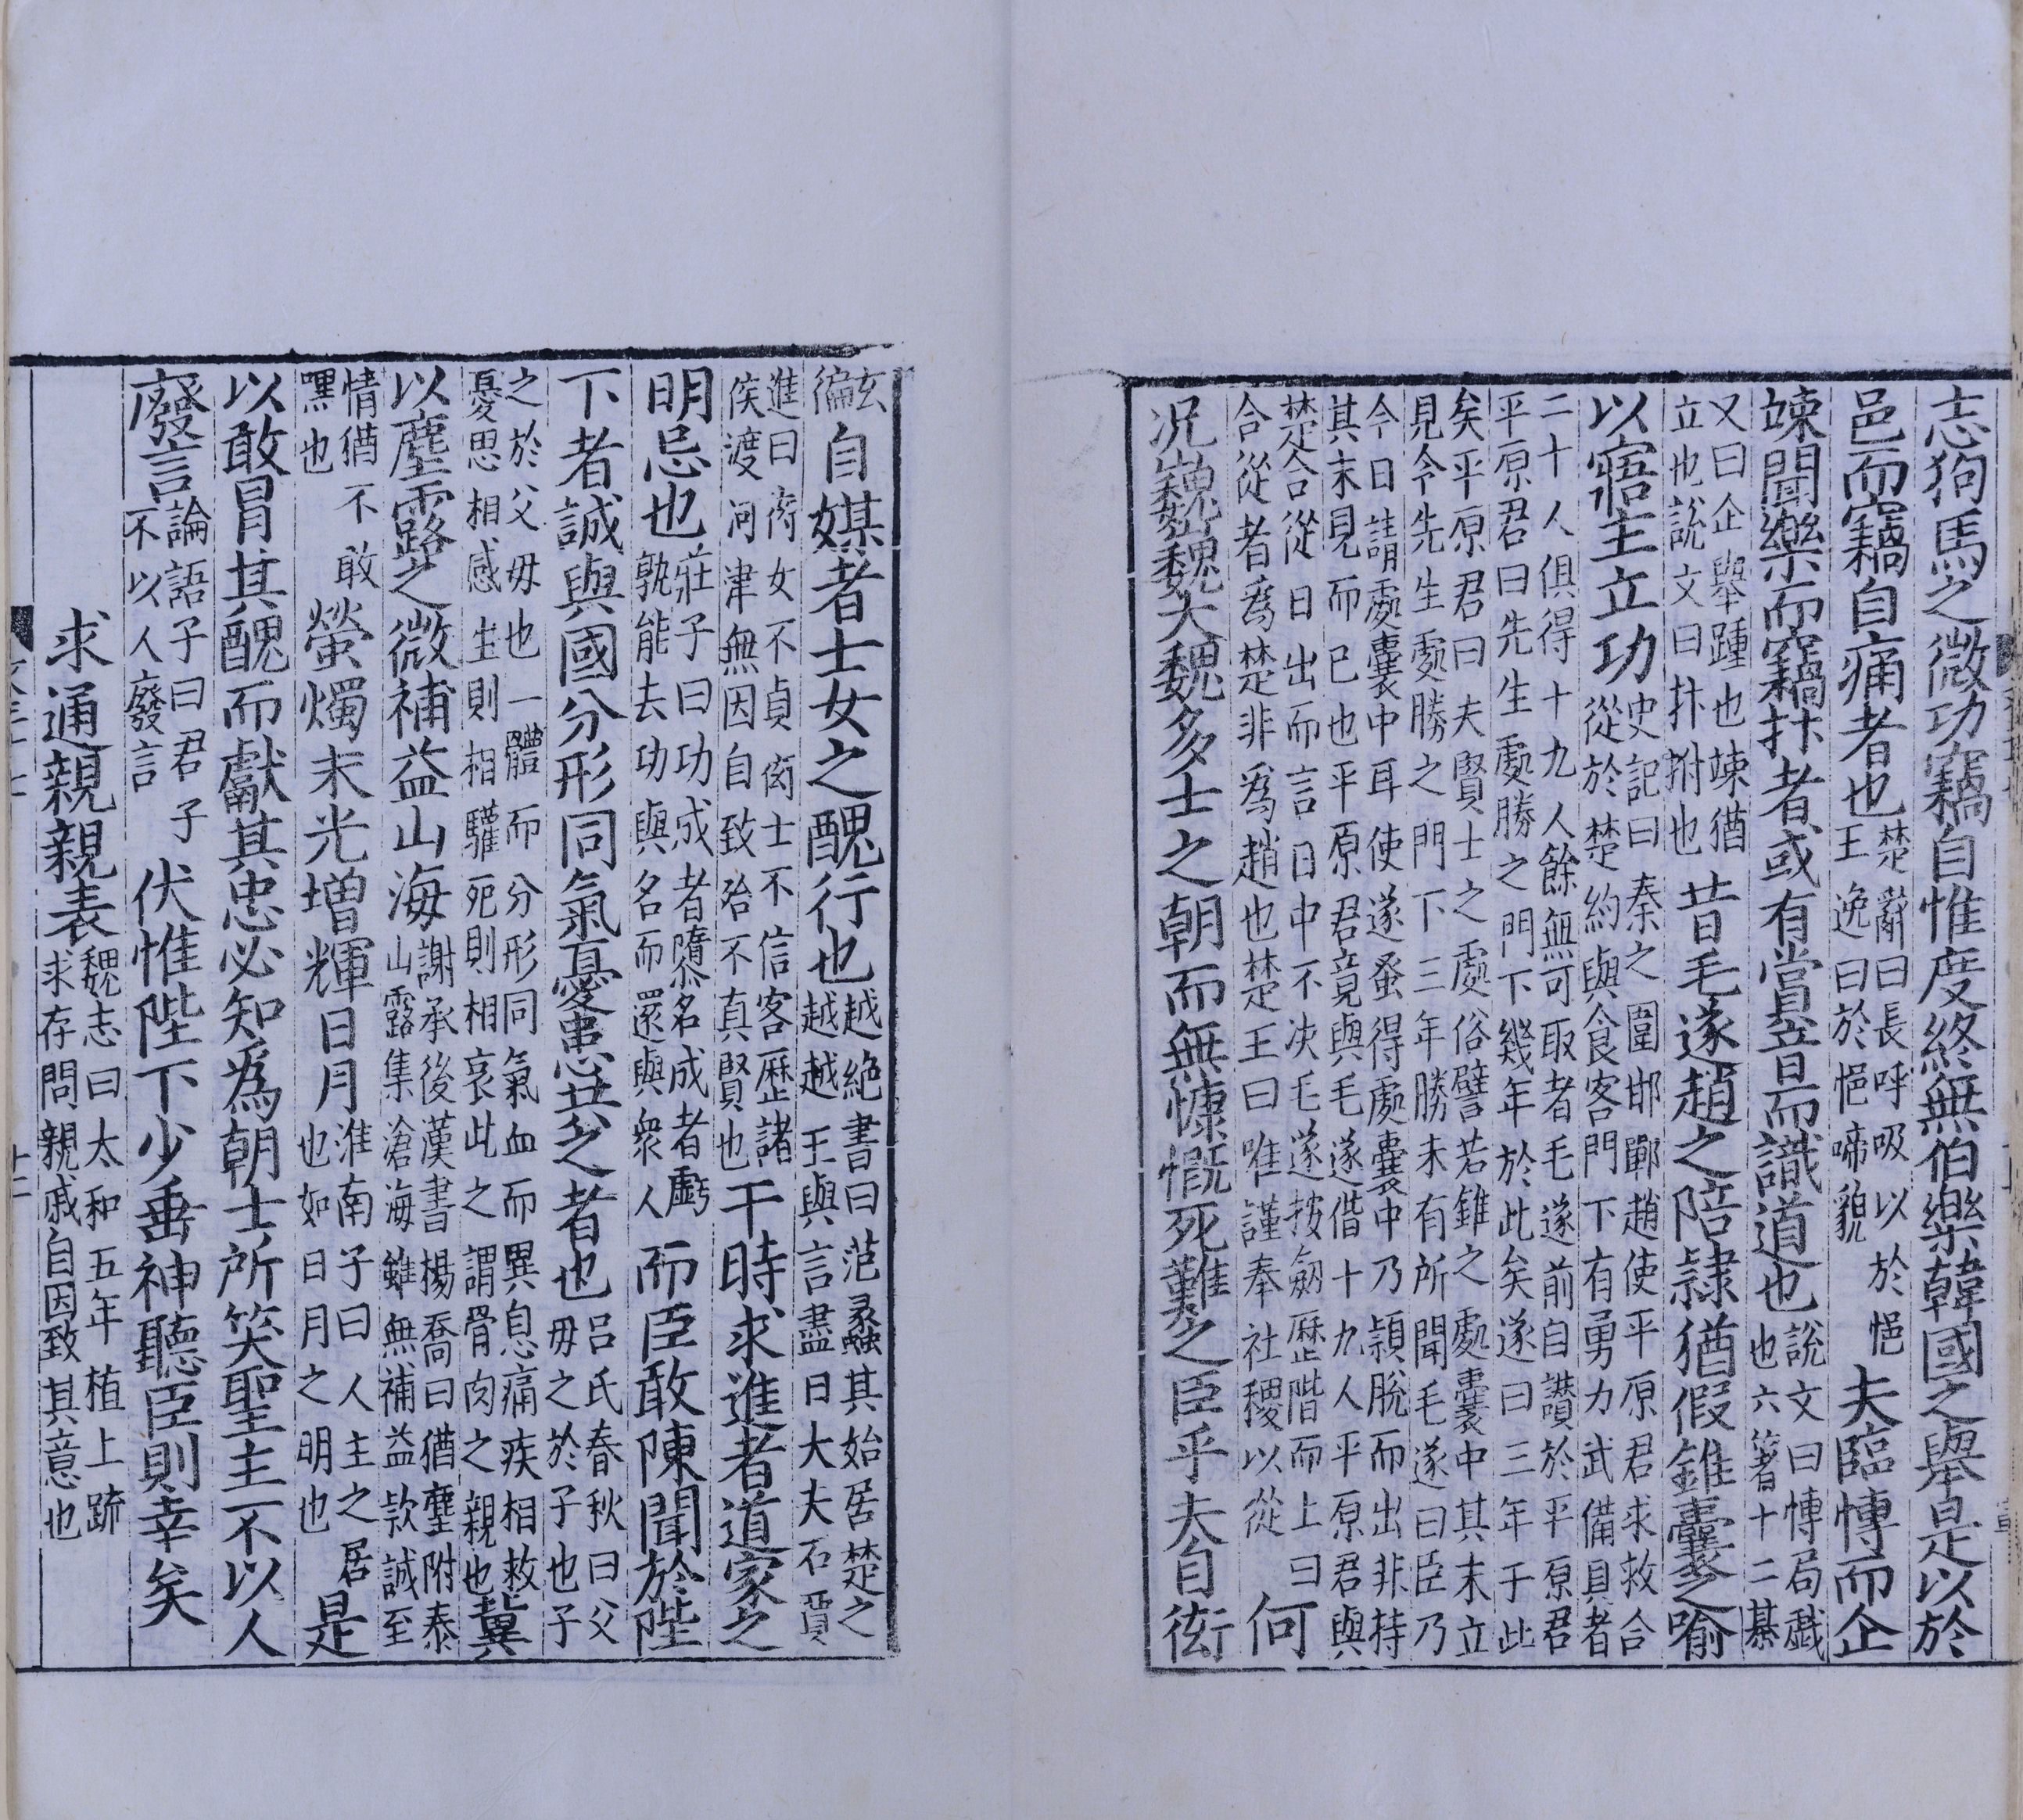 志狗馬之微功竊自惟度終無伯樂韓國之舉是以於
邑而竊自痛者也楚辭曰長呼吸以於悒
王逸曰於悒啼貌夫臨慱而企
竦聞樂而竊抃者或有賞音而識道也說文曰慱局戲
也六箸十二棊
又曰企舉踵也竦猶
立也說文曰抃拊也昔毛遂趙之陪隷猶假錐囊之喻
以寤主立功史記曰秦之圍邯鄲趙使平原君求救合
從於楚約與食客門下有勇力武備具者
二十人俱得十九人餘無可取者毛遂前自讃於平原君
平原君曰先生處勝之門下幾年於此矣遂曰三年于此
矣平原君曰夫賢士之處俗譬若錐之處囊中其末立
見今先生處勝之門下三年勝未有所聞毛遂曰臣乃
今日請處囊中耳使遂蚤得處囊中乃頴脫而出非持
其末見而已也平原君竟與毛遂偕十九人平原君與
楚合從日出而言日中不决毛遂按劒歷階而上曰
合從者爲楚非為趙也楚王曰唯謹奉社稷以從何
况巍巍大魏多士之朝而無慷慨死難之臣乎夫自衒
玄
徧自媒者士女之醜行也越絶書曰范蠡其始居楚之
越越王與言盡日大夫石賈
進曰衒女不貞衒士不信客歷諸
侯渡河津無因自致殆不真賢也干時求進者道家之
明忌也莊子曰功成者隳名成者虧
孰能去功與名而還與衆人而臣敢陳聞於陛
下者誠與國分形同氣憂患共之者也呂氏春秋曰父
母之於子也子
之於父母也一體而分形同氣血而異息痛疾相救
憂思相感生則相驩死則相哀此之謂骨肉之親也冀
以塵露之微補益山海謝承後漢書楊喬曰猶塵附泰
山露集滄海雖無補益款誠至
情猶不敢
嘿也螢燭末光增輝日月淮南子曰人主之居
也如日月之明也是
以敢冒其醜而獻其忠必知爲朝士所笑聖主不以人
廢言論語子曰君子
不以人廢言伏惟陛下少垂神聽臣則幸矣
求通親親表魏志曰太和五年植上疏
求存問親戚自因致其意也